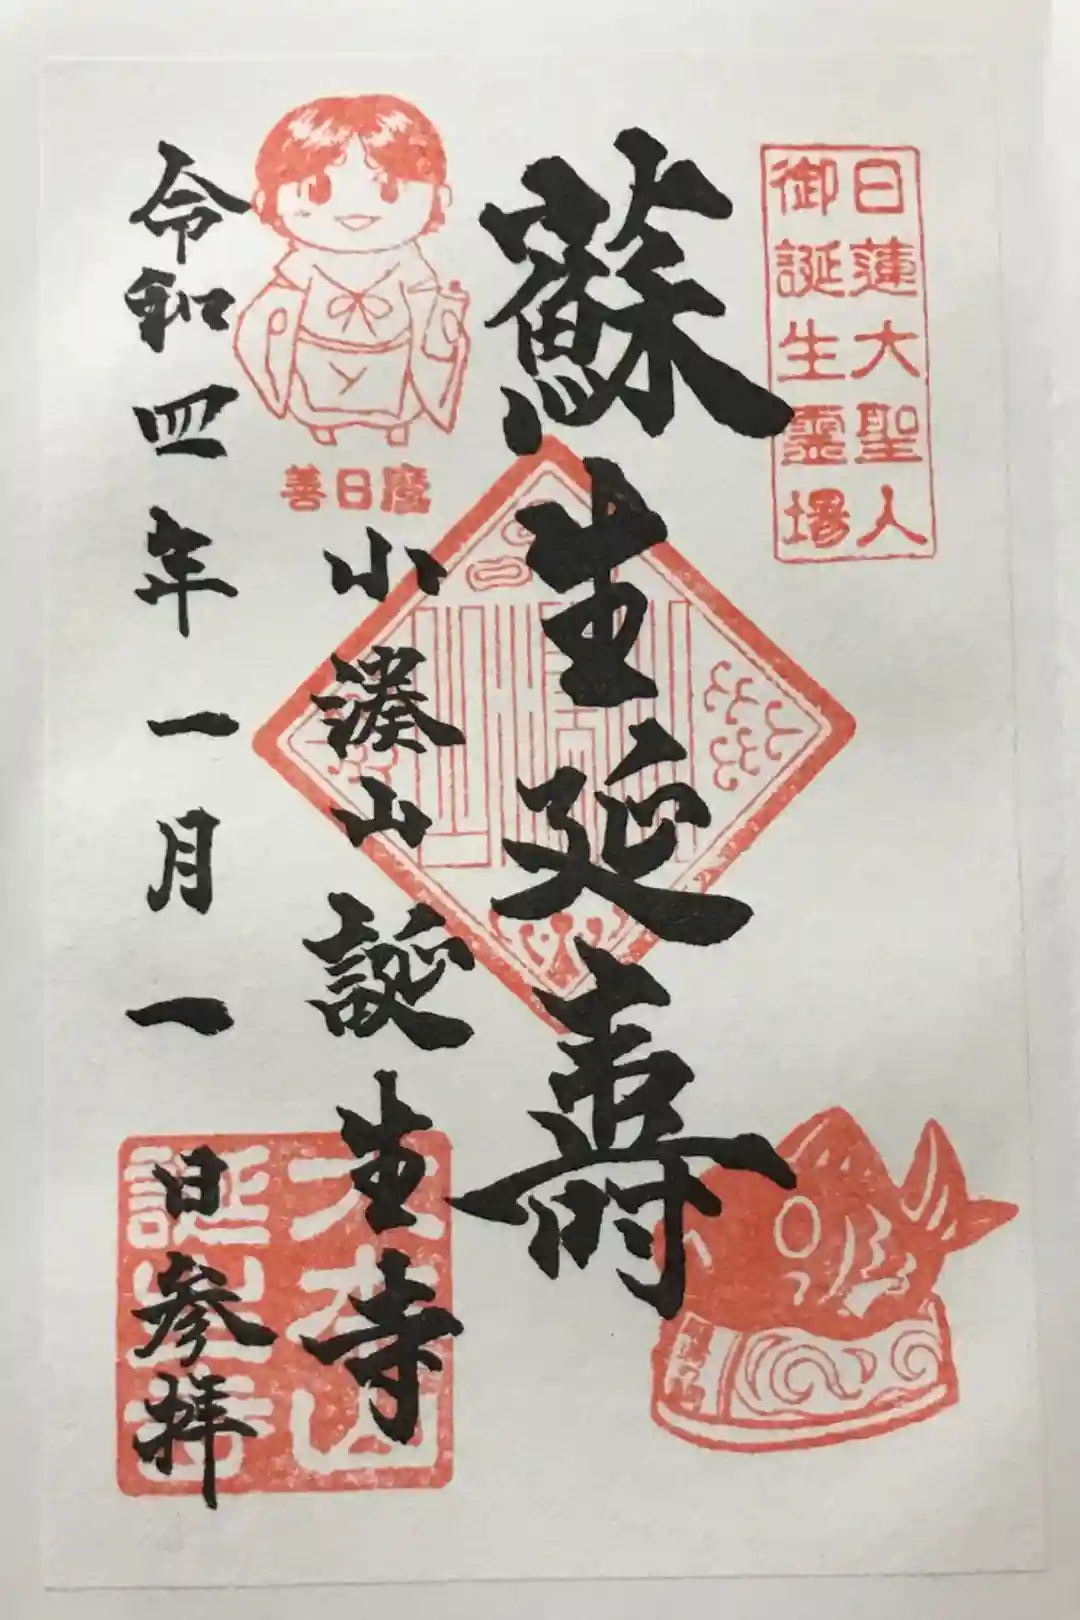 日蓮大聖人
御誕生霊場
蘇生延寿
善日麿
小湊山 誕生寺
大本山
誕生寺
令和四年一月一日参拝